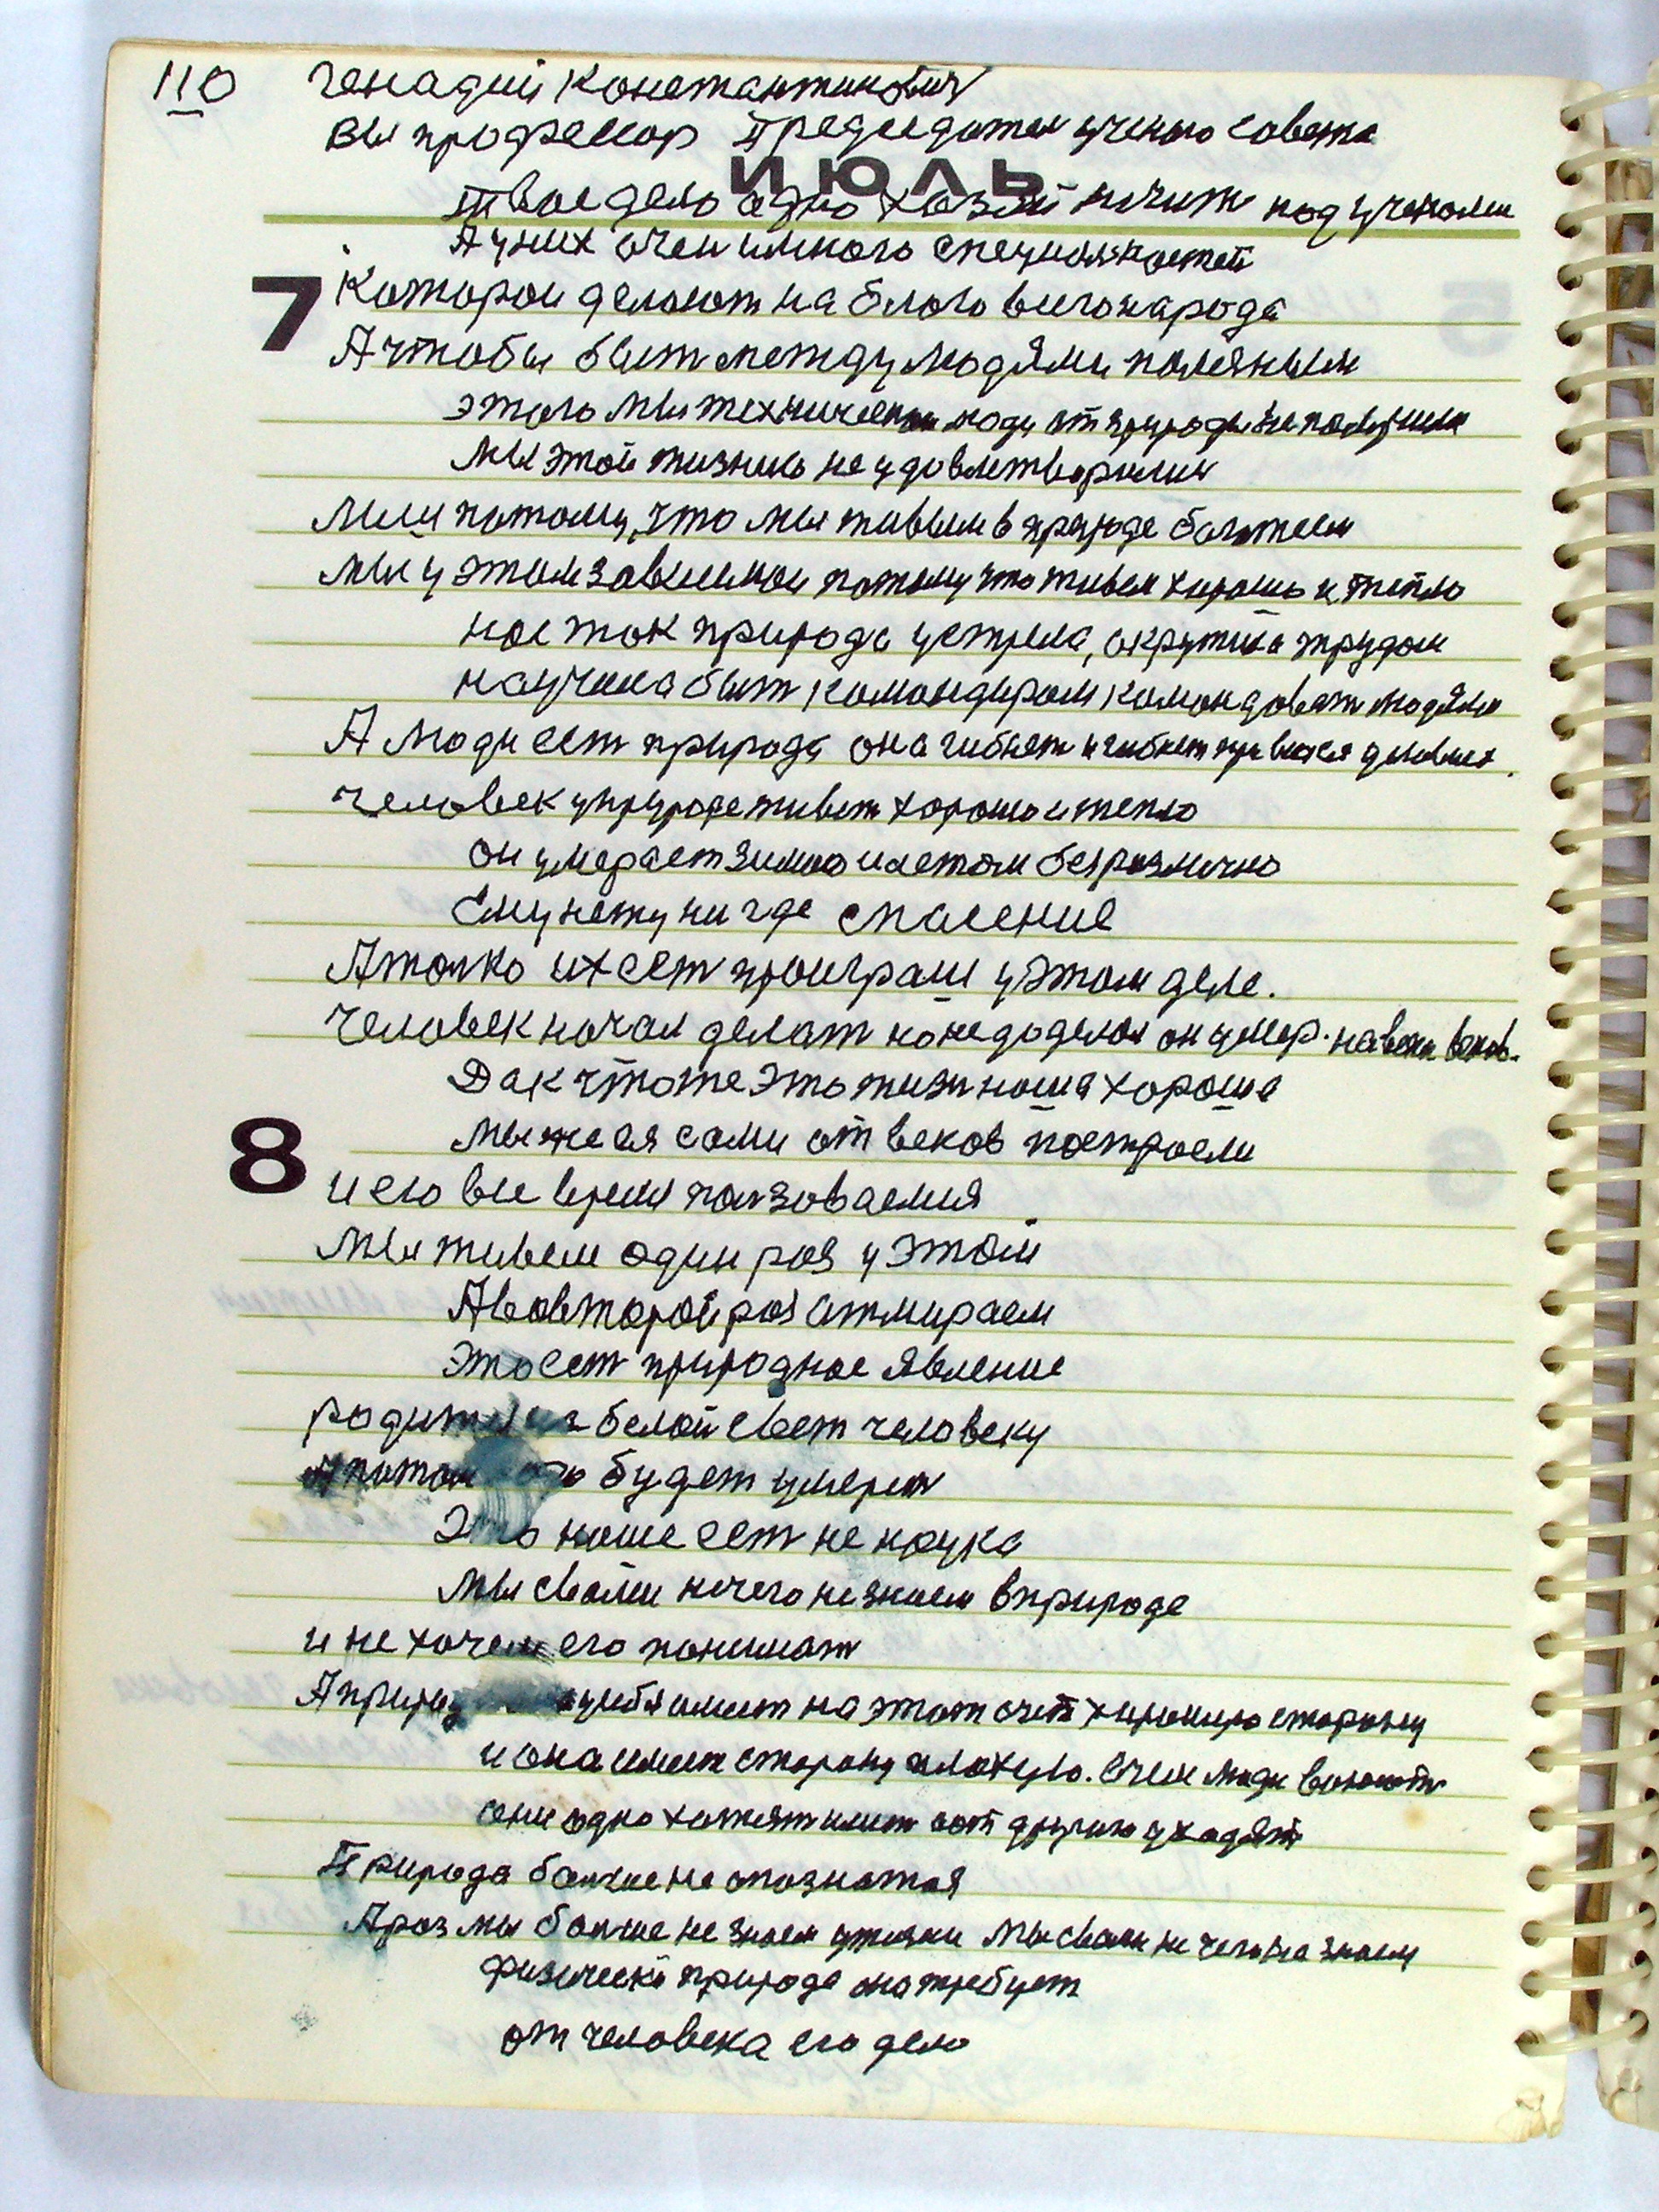 110 Генадий Константинович
Вы профессор Председател ученого совета
ИЮЛЬ
Твое дело одно хозяй над учеными
А у них очен много специальностей
7 Которои делоют на благо всего народа
А чтобы быт между людями полезным
этого мы технически люди от природы не получили
Мы этой жизнию не удовлетворилис
Мы потому, что мы живьем в природе болжеем
Мы у этом зависимои потому что живем хорошо и тепло
нас так природа устрела, окружила трудом
научила быт командиром командоват людями
А люди ест природа она гибнет и гибнет при всяких условиях
человек у природе живет хорошо и тепло
он умерает зимою и летом безразлично
Ему нету ни где спасение
А толко их ест проиграш у этом деле.
Человек начал делат но не доделал он умер. на веки веков.
Дак что же это жизн наша хороша
8 мы же ея сами от веков построели
и ею все время ползоваемся
Мы живем один раз у этом
А во второй раз отмираем
Это ест природное явление
родит на белой свет человеку
А потом его будет умерат
Это наше ест не наука
Мы своим нечего не знаем в природе
и не хочем его понимат
А природа у себя имеит на этот счет хорошую сторону
и она имеит сторону плохую. Все люди воюют
они одно хотят имет а от другого уходят
Природа болше не опознатая
А раз мы болше не знаем у жизни мы свои не чего не знаем
физически природа она требует
от человека его дело